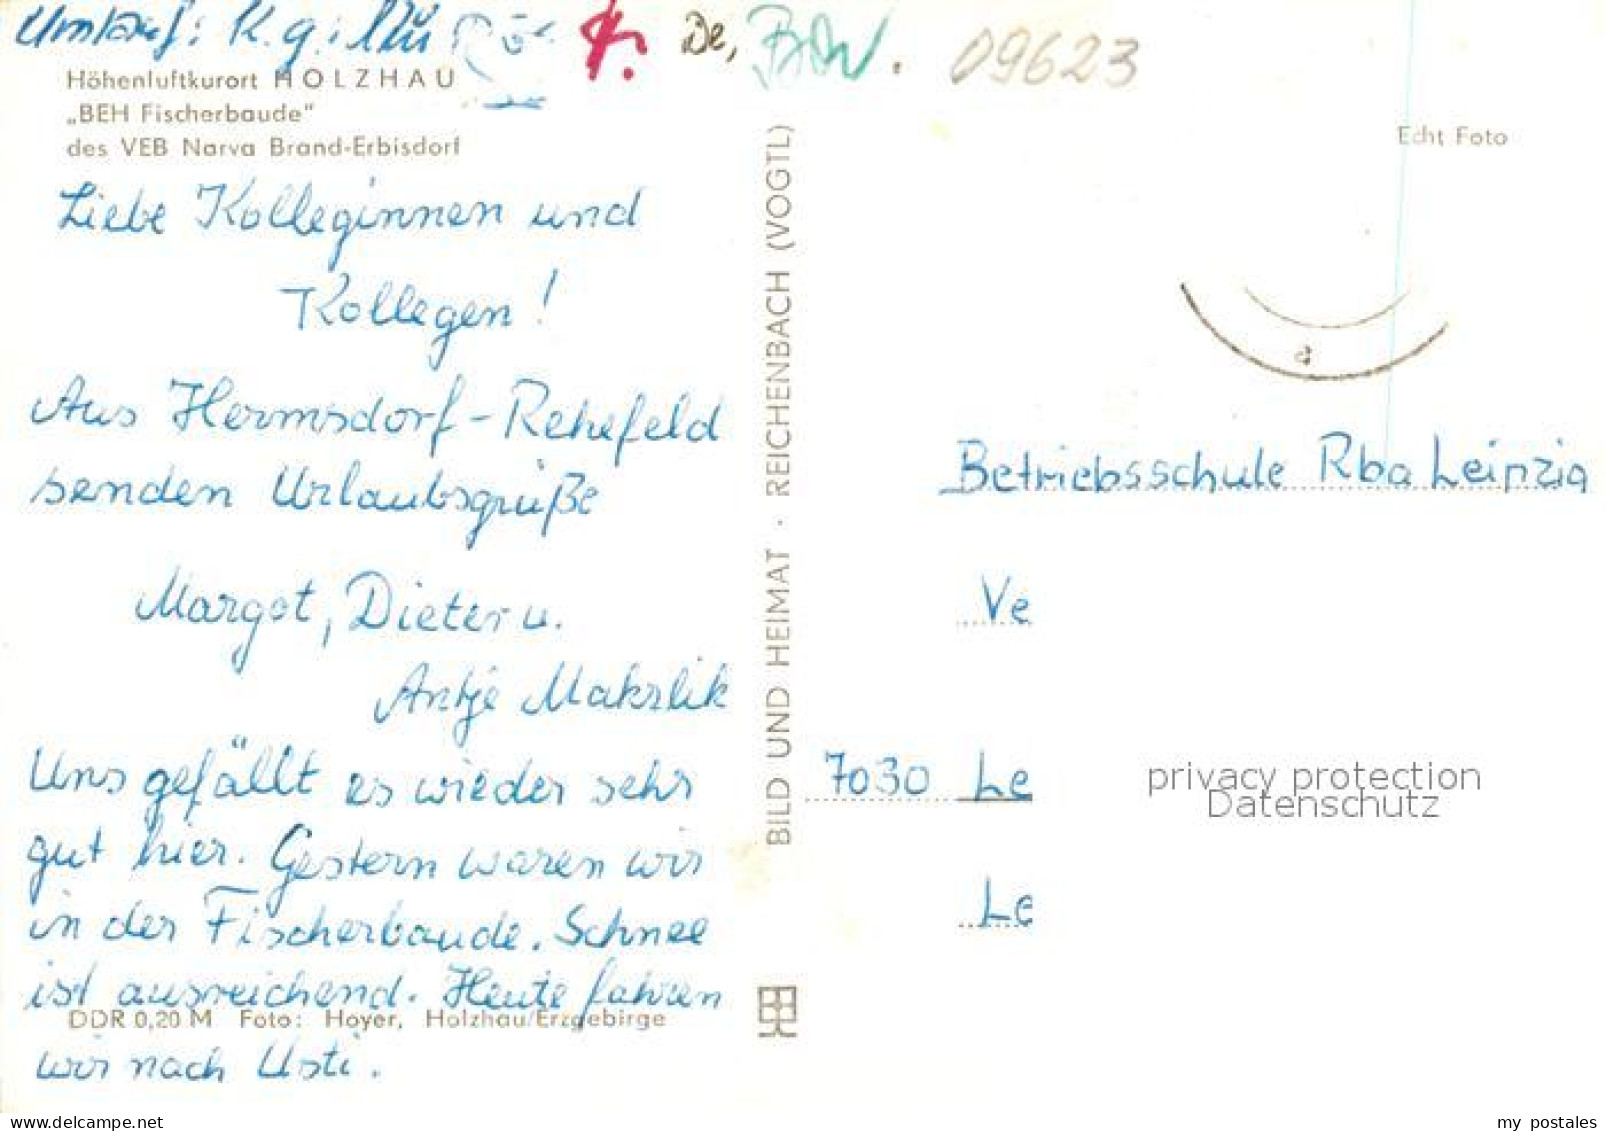 Umlauf: K.g.:
De,
09623
Höhenluftkurort HOLZHAU
„BEH Fischerbaude"
des VEB Narva Brand-Erbisdorf
Liebe Kolleginnen und
Kollegen!
Aus Hermsdorf-Rehefeld
senden Urlaubsgrüße
Margot, Dieter u.
Antje Makslik
Uns gefällt es wieder sehr
gut hier. Gestern waren wir
in der Fischerbaude. Schnee
ist ausreichend. Heute fahren
wir nach Usti.
DDR 0,20 M Foto: Hoyer, Holzhau/Erzgebirge
BILD UND HEIMAT · REICHENBACH (VOGTL)
Echt Foto
Betriebsschule Rba Leipzig
Ve
7030 Le
Le
privacy protection
Datenschutz
www.delcampe.net
my_postales